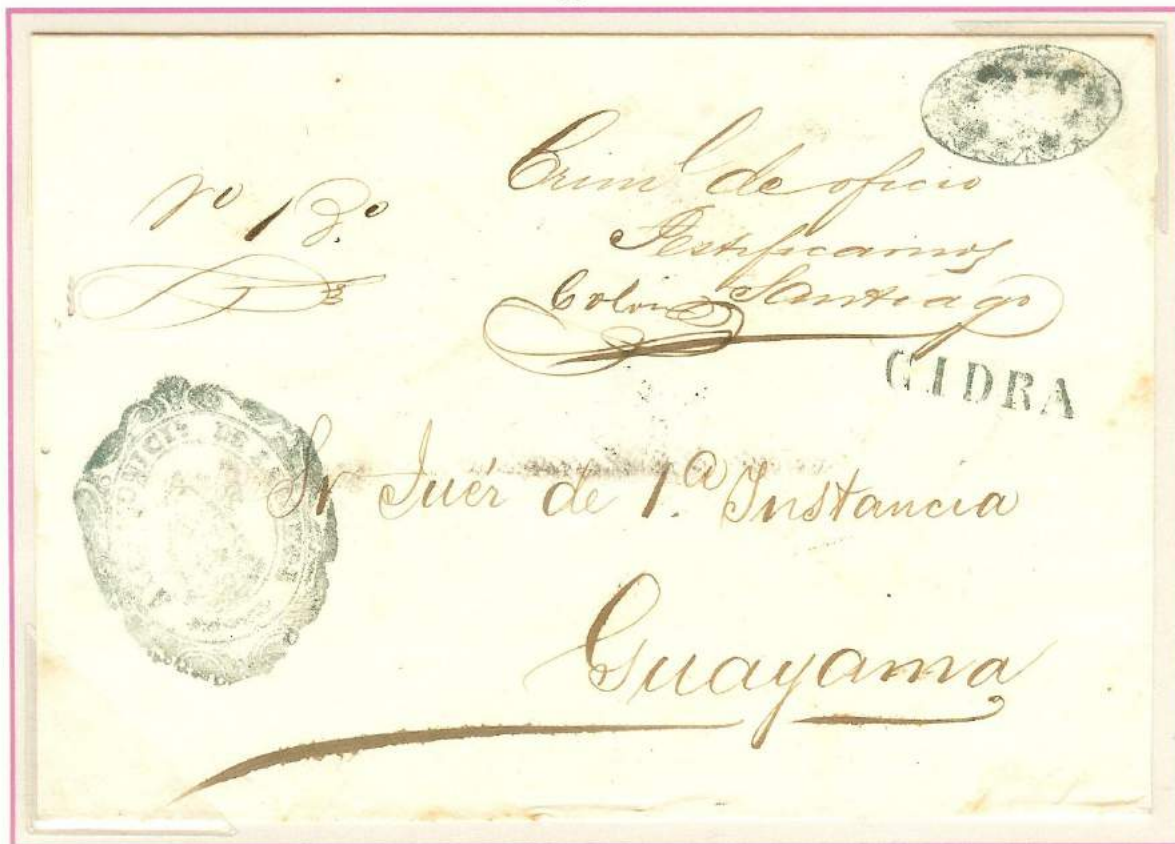 Crim.l de oficio
Testificamos
Colon Santiago
CIDRA
Sr Juéz de 1.a Instancia
Guayama